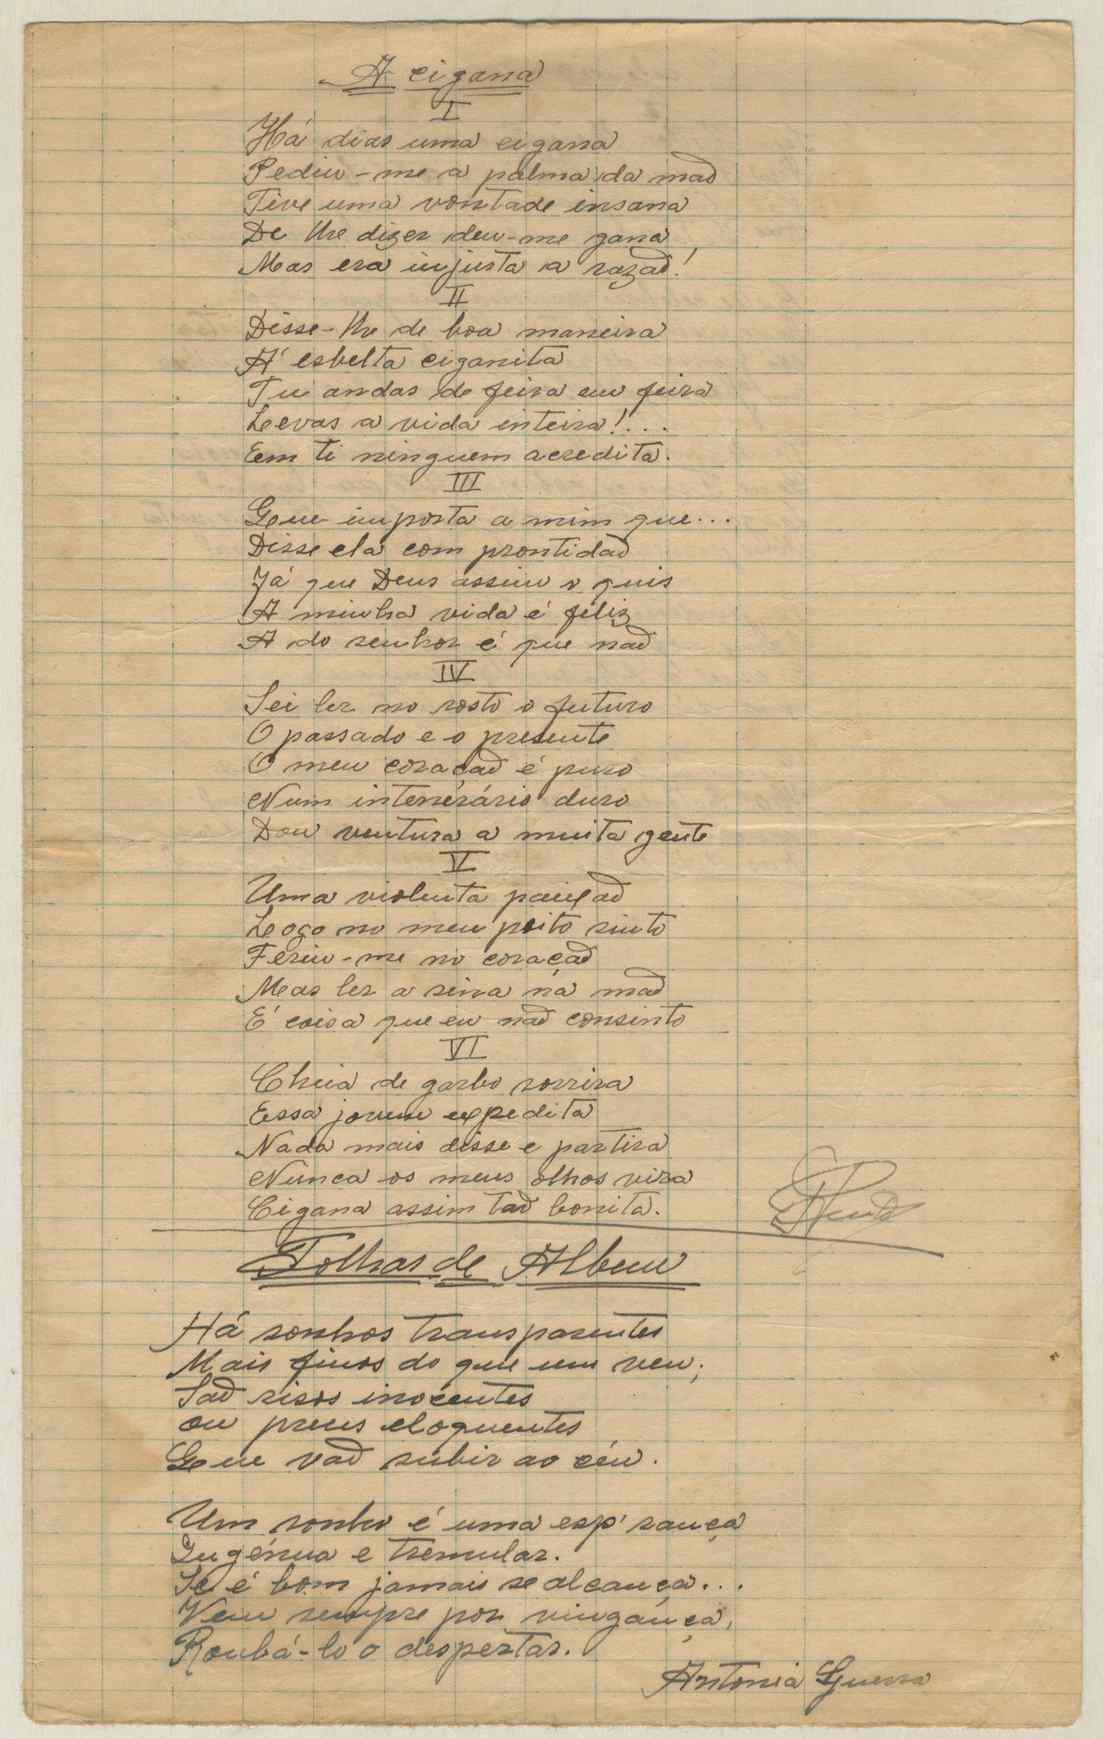 A cigana
I
Há dias uma cigana
Pediu-me a palma da mão
Tive uma vontade insana
De lhe dizer deu-me gana
Mas era injusta a razão!
II
Disse-lhe de boa maneira
A' esbelta ciganita
Tu andas de feira em feira
Levas a vida inteira!...
Em ti ninguem acredita.
III
Que importa a mim que...
Disse ela com prontidão
Já que Deus assim o quis
A minha vida é feliz
A do senhor é que não
IV
Sei ler no rosto o futuro
O passado e o presente
O meu coração é puro
Num intenérário duro
Dou ventura a muita gente
V
Uma violenta paixão
Logo no meu peito sinto
Feriu-me no coração
Mas ler a sina ná mão
E' coisa que eu não consinto
VI
Cheia de garbo sorrira
Essa jovem expedita
Nada mais disse e partira
Nunca os meus olhos vira
Cigana assim tão bonita.
Folhas de Album
Há sonhos transparentes
Mais finos do que um veu;
São risos inocentes
ou preces eloquentes
Que vão subir ao céu.
Um sonho é uma esp'rança
Ingénua e tremular.
Se é bom jamais se alcança...
Vem sempre por vingança,
Roubá-lo o despertar.
Antonia Guerra